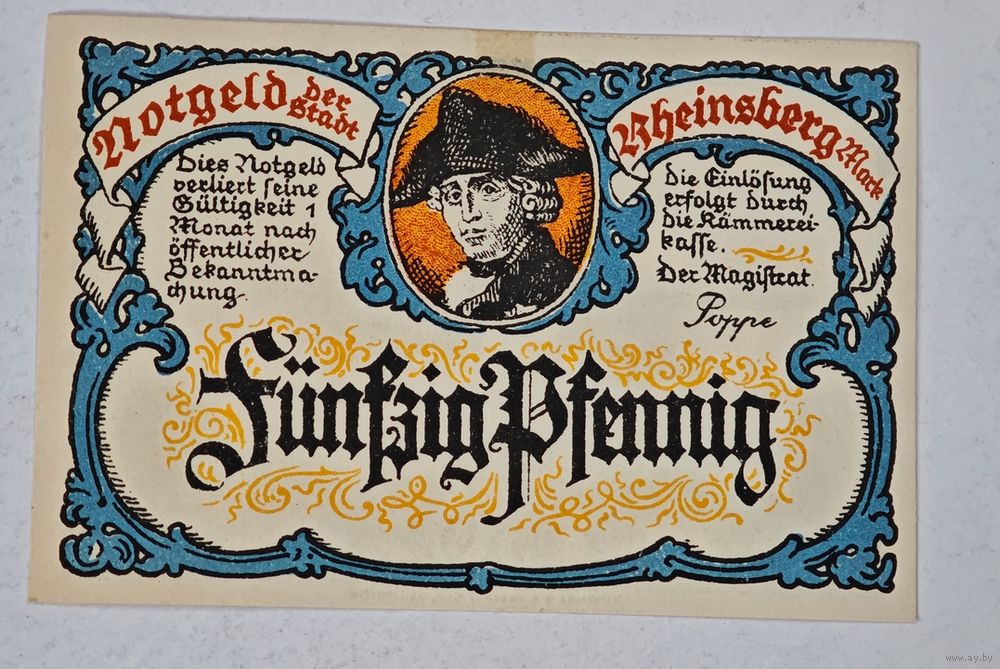 Notgeld der Stadt
Rheinsberg Mark
Dies Notgeld
verliert seine
Gültigkeit 1
Monat nach
öffentlicher
Bekanntma-
chung.
Die Einlösung
erfolgt durch
die Kämmerei-
kasse.
Der Magistrat.
Poppe
Fünfzig Pfennig
www.ay.by